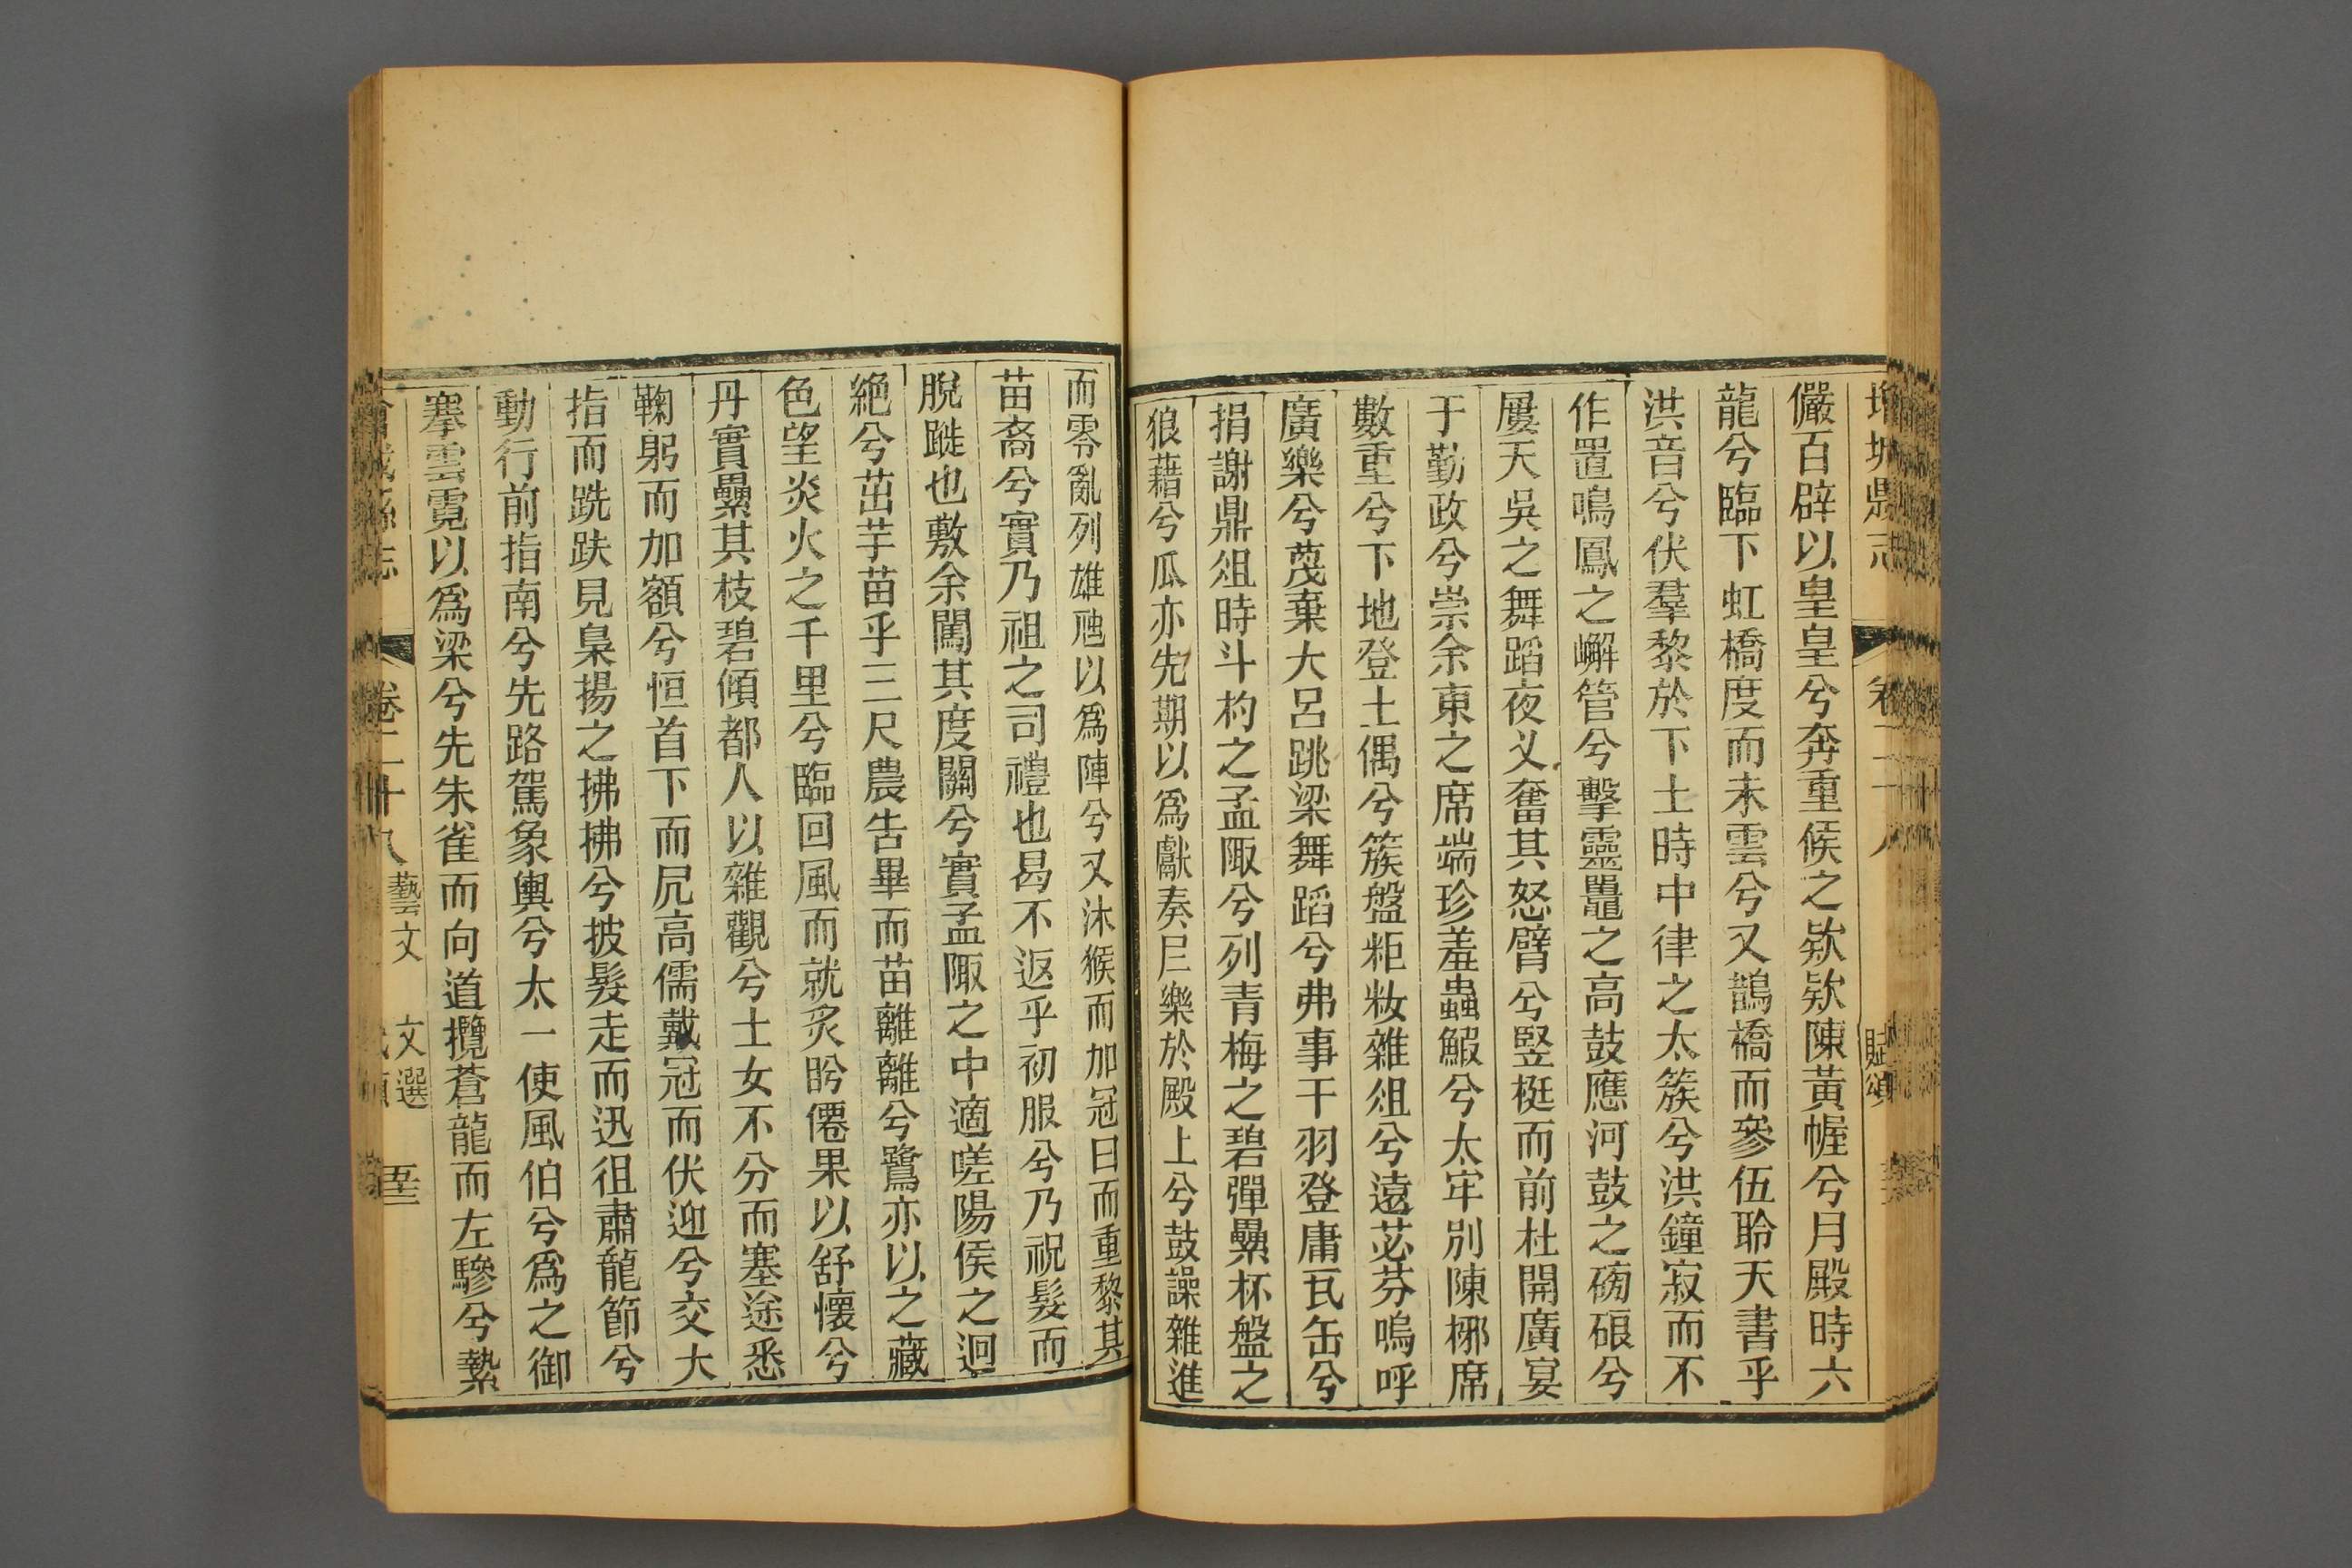 增城縣志
卷二十八
賦頌
儼百辟以皇皇兮奔重候之欻欻陳黃幄兮月殿時六
龍兮臨下虹橋度而未雲兮又鵲橋而參伍聆天書乎
洪音兮伏羣黎於下土時中律之太簇兮洪鐘寂而不
作置鳴鳳之嶰管兮擊靈鼉之高鼓應河鼓之硠兮
屢天吳之舞蹈夜义奮其怒臂兮竪梃而前杜開廣宴
于勤政兮崇余東之席端珍羞蟲鰕兮太牢別陳梛席
數重兮下地登土偶兮簇盤粔籹雜俎兮遠苾芬嗚呼
廣樂兮蔑棄大呂跳梁舞蹈兮弗事干羽登庸瓦缶兮
捐謝鼎俎時斗杓之孟陬兮列青梅之碧彈纍杯盤之
狼藉兮瓜亦先期以爲獻奏巨樂於殿上兮鼓譟雜進
而零亂列雄虺以爲陣兮又沐猴而加冠曰而重黎其
苗裔兮實乃祖之司禮也曷不返乎初服兮乃祝髮而
脫蹝也敷余闈其度關兮實孟陬之中適嗟陽侯之迥
絕兮茁芋苗乎三尺農告畢而苗離離兮鷺亦以之藏
色望炎火之千里兮臨回風而就炙盻僊果以舒懷兮
丹實纍其枝碧傾都人以雜觀兮士女不分而塞途悉
鞠躬而加額兮恒首下而尻高儒戴冠而伏迎兮交大
指而跣趺見梟揚之拂拂兮披髮走而迅徂肅龍節兮
動行前指南兮先路駕象輿兮太一使風伯兮爲之御
搴雲霓以爲梁兮先朱雀而向道攬蒼龍而左驂兮縶
卷二十八
藝文
文選